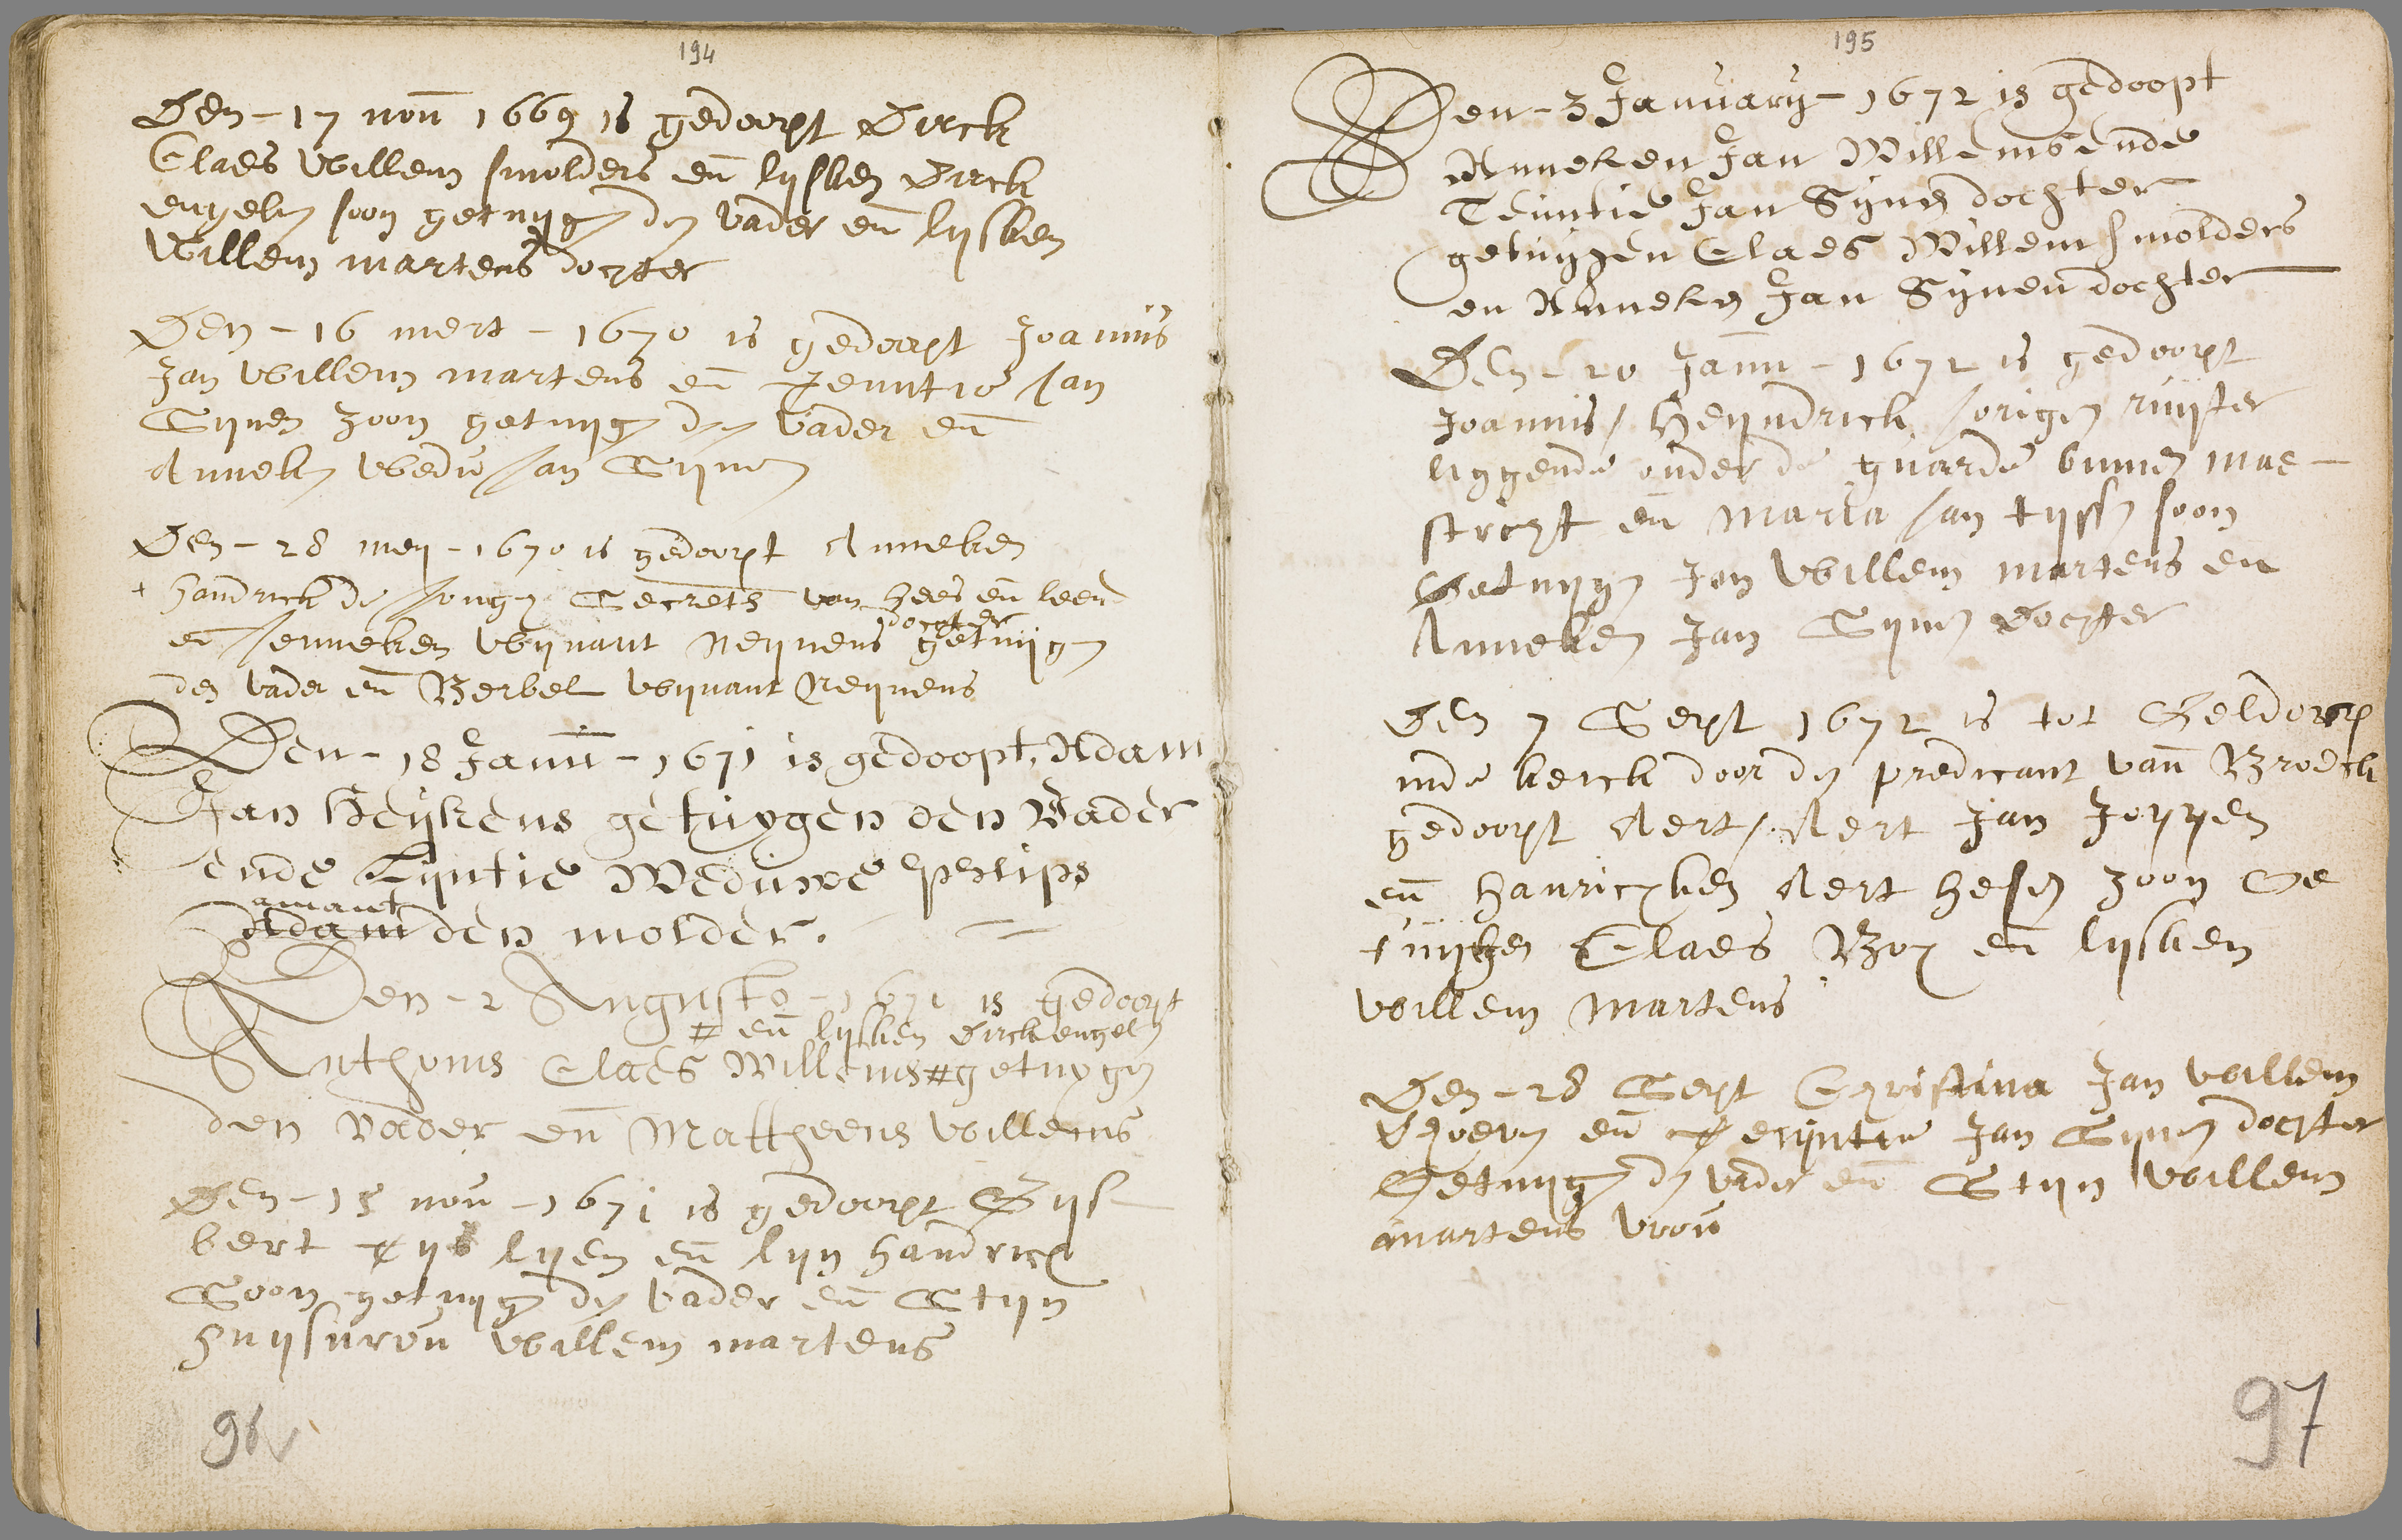 194
Den - 17 nov 1669 is gedoopt Dirck
Claes Willem smolders en̄ lijsken Dirck
engelen soon getuijgen den vader en̄ lijsken
Willem martens dochter
Den - 16 mert - 1670 is gedoopt Joannis
Jan Willem martens en̄ Jenntie Jan
Sijnen zoon getuijgen den vader en̄
Anneken Wedu Jan Sijnen
Den - 28 meij - 1670 is gedoopt Anneken
+ handrick de Jonge Secrets van hees en̄ leen
en Jenneken Wijnant Reijnens dochter getuijgen
den vader en̄ Berbel Wijnant Reijnens
Den - 18 Janu̅ - 1671 is gedoopt, Adam
Jan Heijkens getuijgen den Vader
ende Lijntie Weduwe Philips
amant
Adam den molder.
Den - 2 Augusto - 1671 is gedoopt
# en̄ lijsken Dirck engelen
Anthonis Claes Willems # getuijgen
den Vader en̄ Mattheeus Willems
Den - 15 nov - 1671 is gedoopt Gijs
bert tijs lijen en̄ lijn handrick
Soon getuijgen den vader en̄ Stijn
huijsvrou Willem martens
96v
195
Den - 3 January - 1672 is gedoopt
Anneken Jan Willems ende
Teuntie Jan Sijnen dochter
getuijgen Claes Willem smolders
en Anneken Jan Sijnen dochter
Den - 20 Janu - 1672 is gedoopt
Joannis / Heijndrick Jorigen ruijter
liggende onder de guarde binnen mae -
stricht en̄ Maria Jan tijssen soon
Getuijgen Jan Willem martens en
Anneken Jan Sijnen dochter
Den 7 Sept 1672 is tot Geldorp
inde kerck door den predicant van̄ Broeck
gedoopt Aert / Aert Jan Joppen
en̄ hanricxken Aert hesen zoon Ge
tuijgen Claes Boy en̄ lijsken
Willem Martens
Den - 28 Sept Christina Jan Willem
en̄ Teijntie Jan Sijnen dochter
Getuijgen den vader en̄ Stijn Willem
martens vrou
97